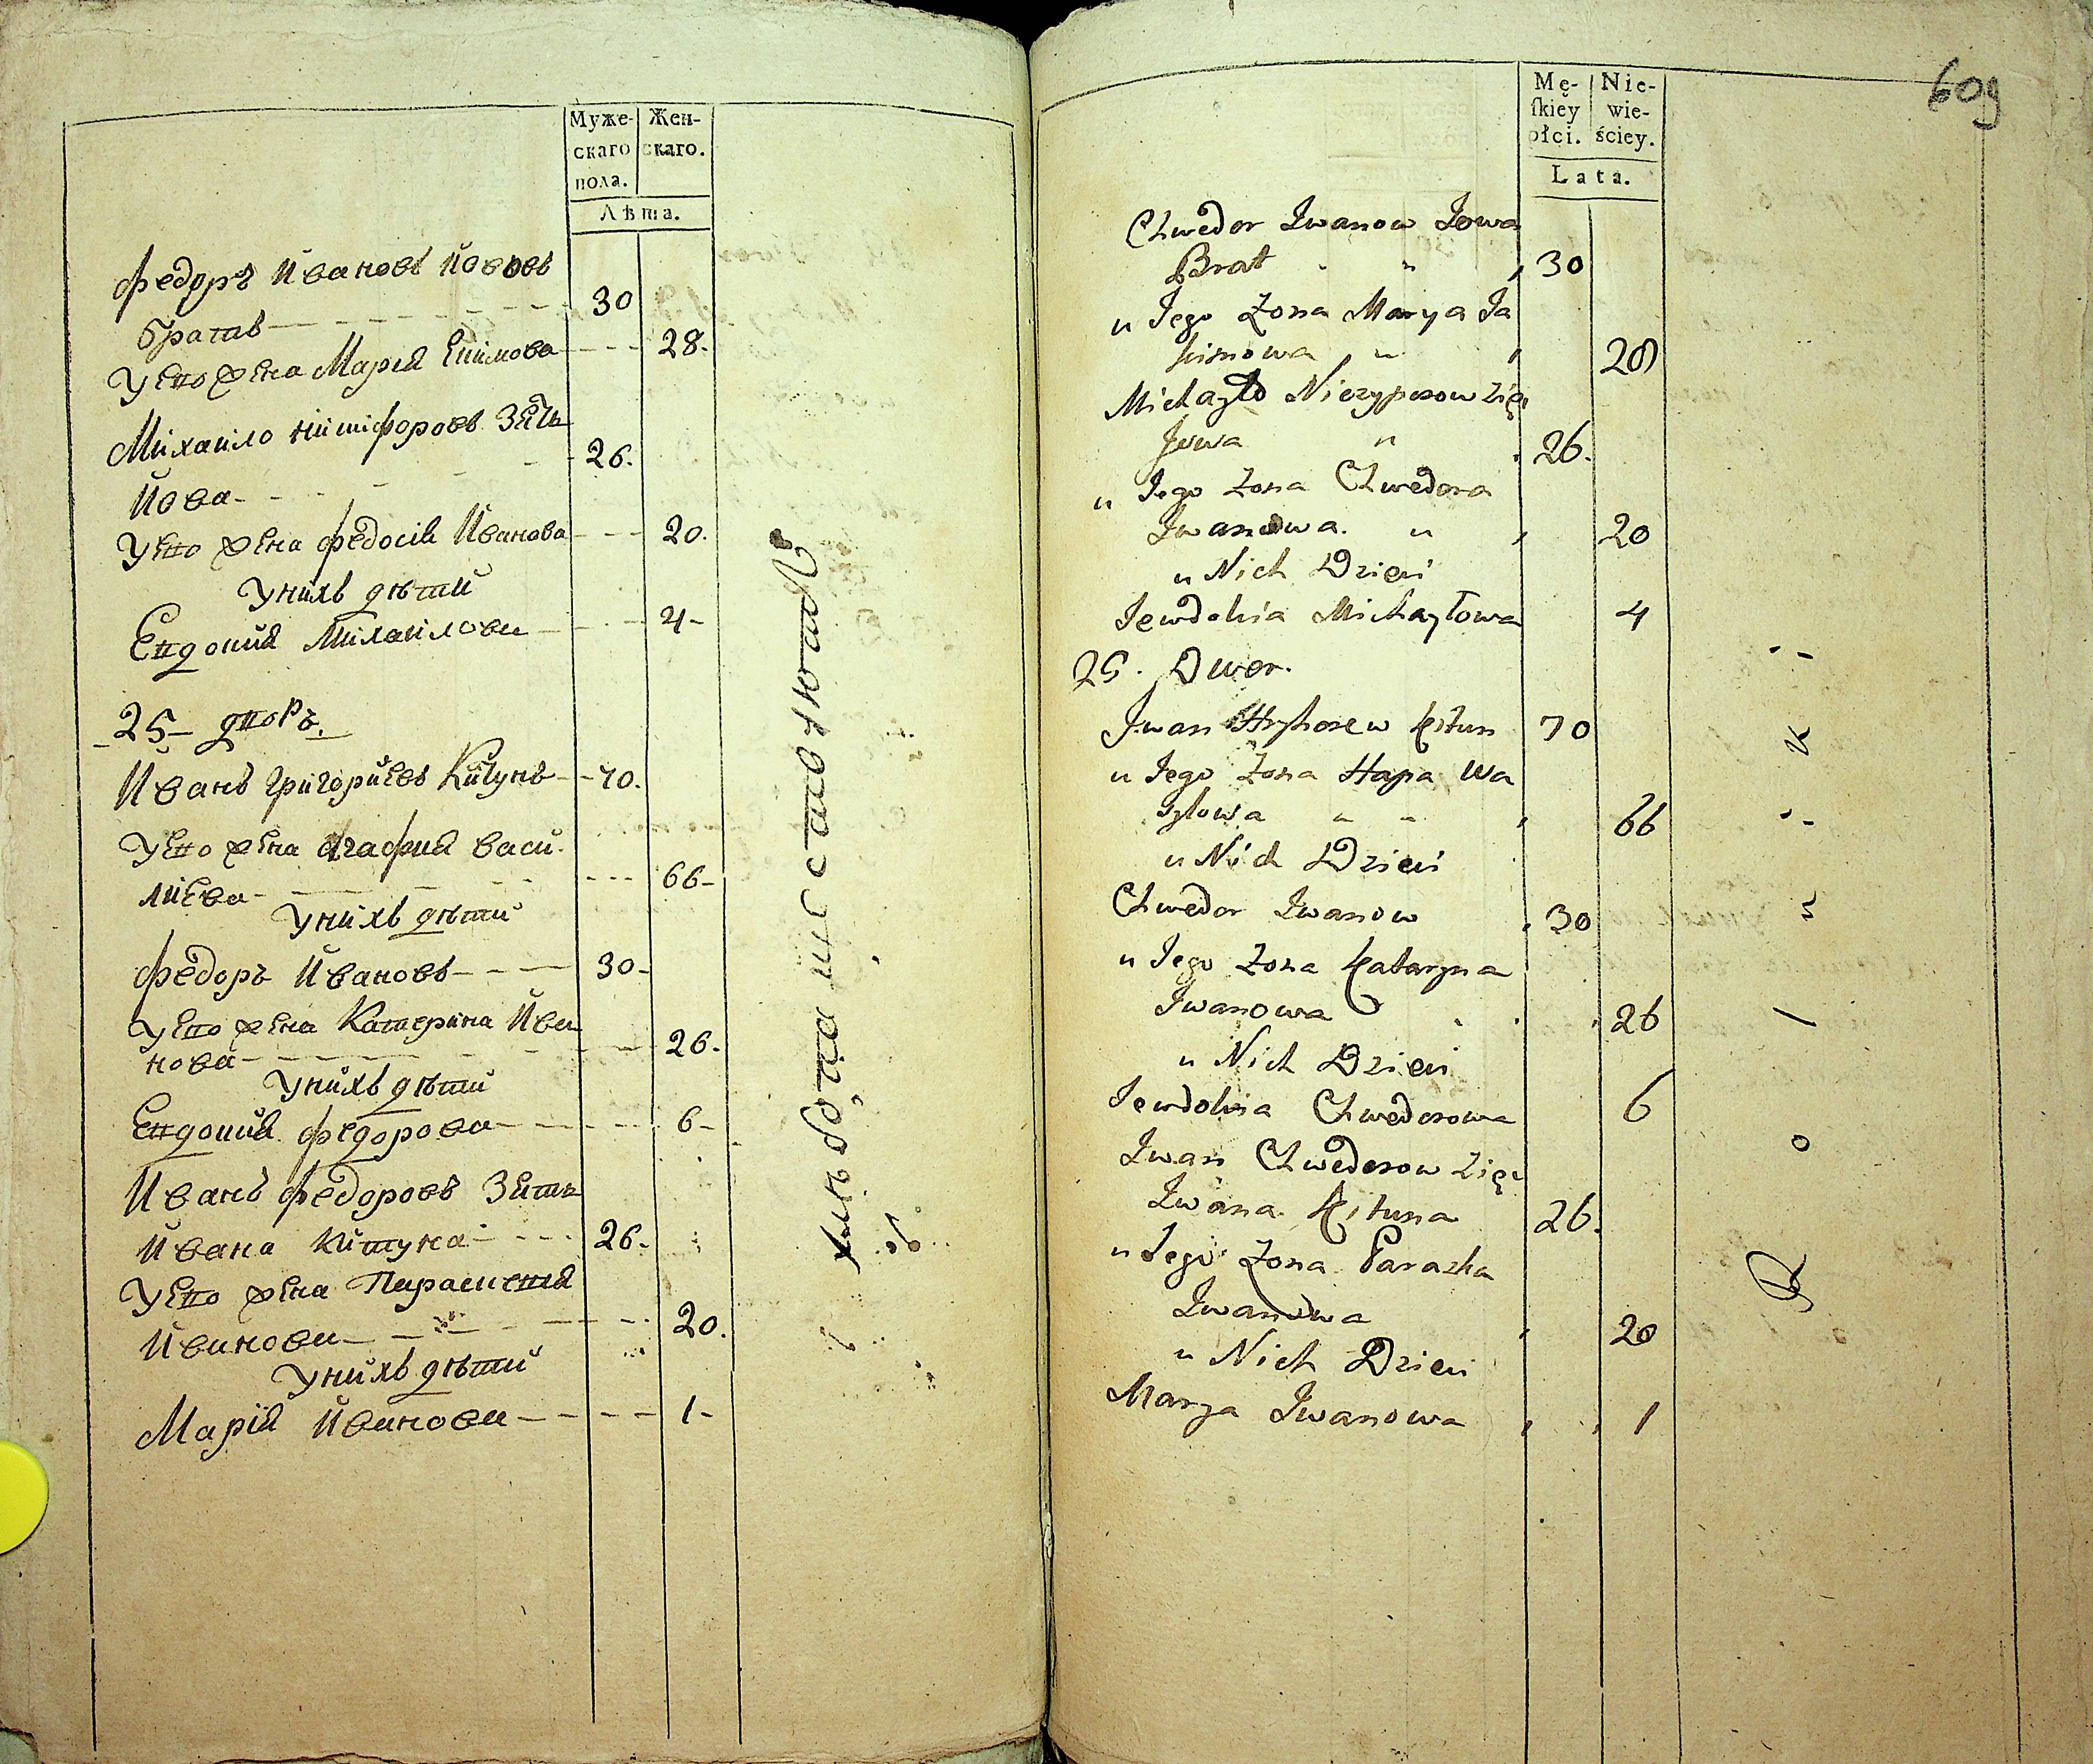 Муже-
скаго
пола.
Жен-
скаго.
Лѣта.
Федоръ Ивановъ Иововъ
братъ 30
У ево жена Марія Екимова 28.
Михаило Никифоровъ Зять
Иова 26.
У ево жена Федосія Иванова 20.
У нихъ дѣти
Евдокия Михаилова 4
25 дворъ.
Иванъ Григориевъ Китунъ 70.
У ево жена Агафия Васи-
лиева 66
У нихъ дѣти
Федоръ Ивановъ 30
У ево жена Катерина Ива
нова 26.
У нихъ дѣти
Евдокия Федорова 6
Иванъ Федоровъ Зять
Ивана Китуна 26.
У ево жена Парасковия
Иванова 20.
У нихъ дѣти
Марія Иванова 1
609
Mę-
ſkiey
płci.
Nie-
wie-
ściey.
Lata.
Chwedor Iwanow Iowa
Brat 30
u Iego Zona Marya Ia
kimowa 28
Michayło Niczyporow Zięć
Iowa 26.
u Iego Zona Chwedora
Iwanowa. 20
u Nich Dzieci
Iewdokia Michayłowa 4
25. Dwor.
Iwan Hryhorew Kitun 70
u Iego Zona Hapa Wa
sylowa 66
u Nich Dzieci
Chwedor Iwanow 30
u Iego Zona Kataryna
Iwanowa 26
u Nich Dzieci
Iewdokia Chwedorowa 6
Iwan Chwedorow Zięć
Iwana Kituna 26.
u Iego Zona Paraska
Iwanowa 20
u Nich Dzieci
Marya Iwanowa 1
Rolniki